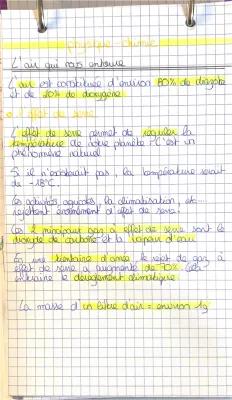 Physique chimie
L'air qui nous entoure
L'air est constituée d'environ 80% de diazote
et de 20% de dioxygène
effet de serre
L'effet de serre permet de réguler la
température de notre planète. C'est un
phénomène naturel
S'il n'existerait pas, la température serait
de -18°C.
Les activités agricoles, la climatisation, etc...
rejettent énormément d'effet de serre.
Les 2 principaux gaz à effet de serre sont le
dioxyde de carbone et la vapeur d'eau
En une trentaine d'année, le rejet de gaz à
effet de serre a augmenté de 70%. Cela
entraîne le dérèglement climatique
La masse d'un litre d'air = environ 1g